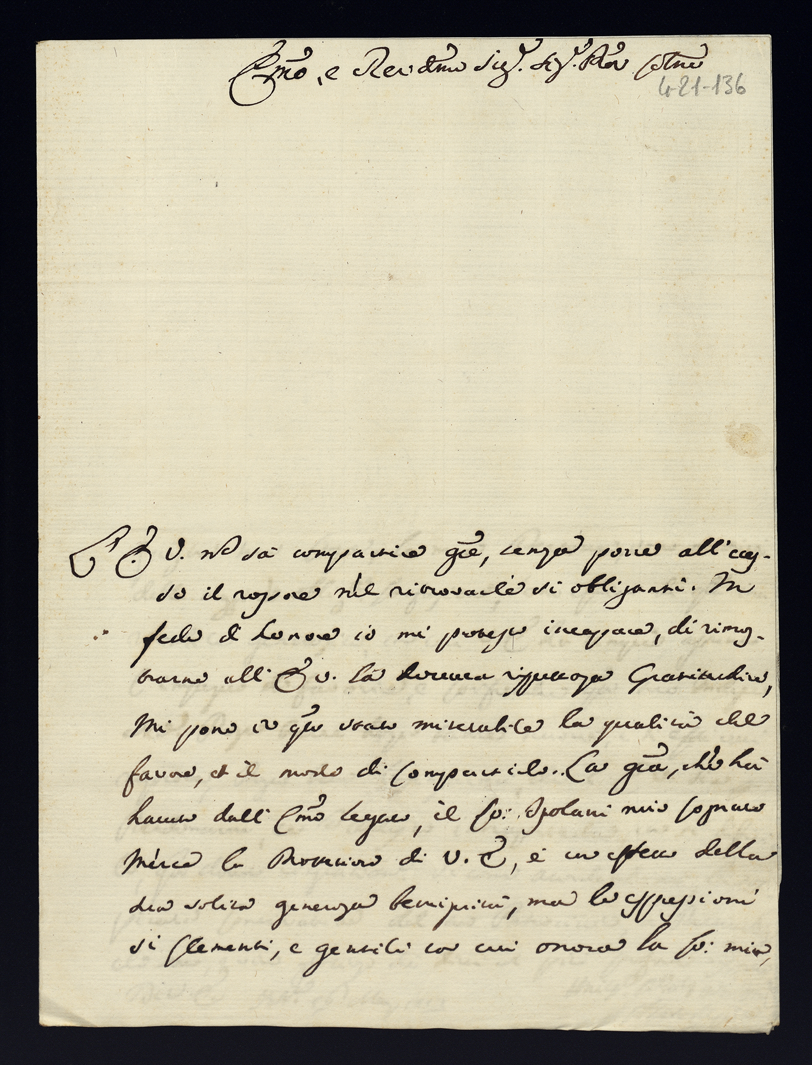 Emõ, e Revdmo Sig.r Sig.r Pron Colmõ
4-21-136
L'E. V. nõ sà compartire grẽ, senza porre all'ecces-
so il rossore nel ritrovarle si obliganti. In
fede di honore io mi protesto incapace, di rimos-
trarne all'E. V. la dovuta rispettosa Gratitudine,
Mi pone in qũto stato miserabile la qualità del
favore, et il modo di compartirlo. La grã, che hà
havuto dall'Emõ Legato, il Co: Spolani mio Cognato
Mercè la Protezione di V. E., è un effetto della
sua solita generosa benignità, ma le espressioni
si Clementi, e gentili con cui onora la Co: mia,